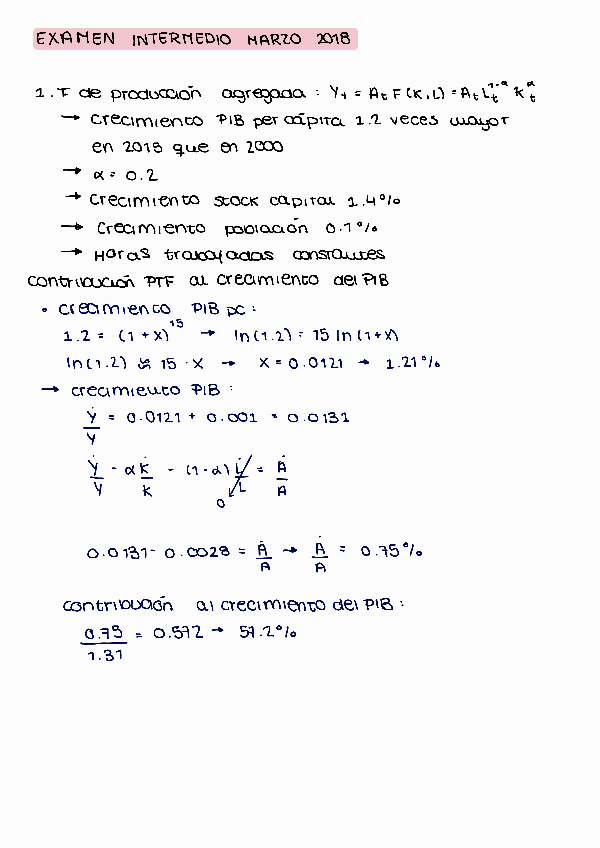 EXAMEN INTERMEDIO MARZO 2018
1. F de producción agregada : Yt = At F(K,L) = At Lt^1-α Kt^α
→ Crecimiento PIB per cápita 1.2 veces mayor
en 2015 que en 2000
→ α = 0.2
→ Crecimiento stock capital 1.4%
→ Crecimiento población 0.1%
→ Horas trabajadas constantes
Contribución PTF al crecimiento del PIB
• crecimiento PIB pc :
1.2 = (1 + X)^15 → ln(1.2) = 15 ln(1+X)
ln(1.2) ≈ 15 · X → X = 0.0121 → 1.21%
→ crecimiento PIB :
Ẏ/Y = 0.0121 + 0.001 = 0.0131
Ẏ/Y - α K̇/K - (1-α) L̇/L = Ȧ/A
0
0.0131 - 0.0028 = Ȧ/A → Ȧ/A = 0.75%
contribución al crecimiento del PIB :
0.75/1.31 = 0.572 → 57.2%